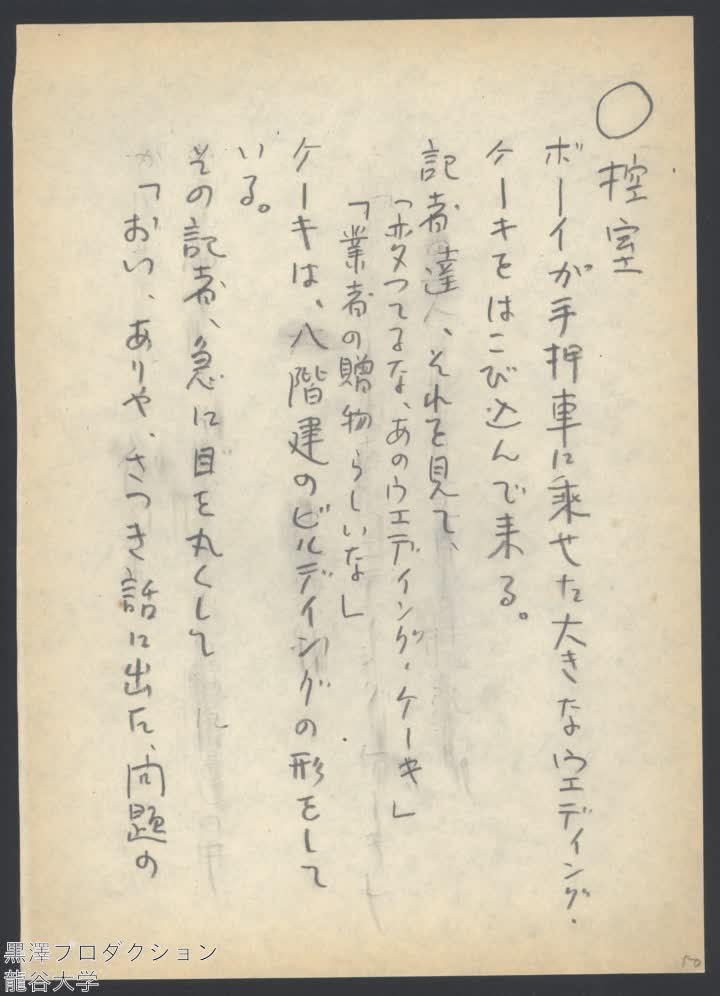 ○控室
ボーイが手押車に乗せた大きなウエディング・
ケーキをはこび込んで来る。
記者達、それを見て、
「ホタつてるな、あのウエディング・ケーキ」
「業者の贈物らしいな」
ケーキは、八階建のビルディングの形をして
いる。
その記者、急に目を丸くして
「おい、ありや、さつき話に出た、問題の
50
黒澤プロダクション
龍谷大学